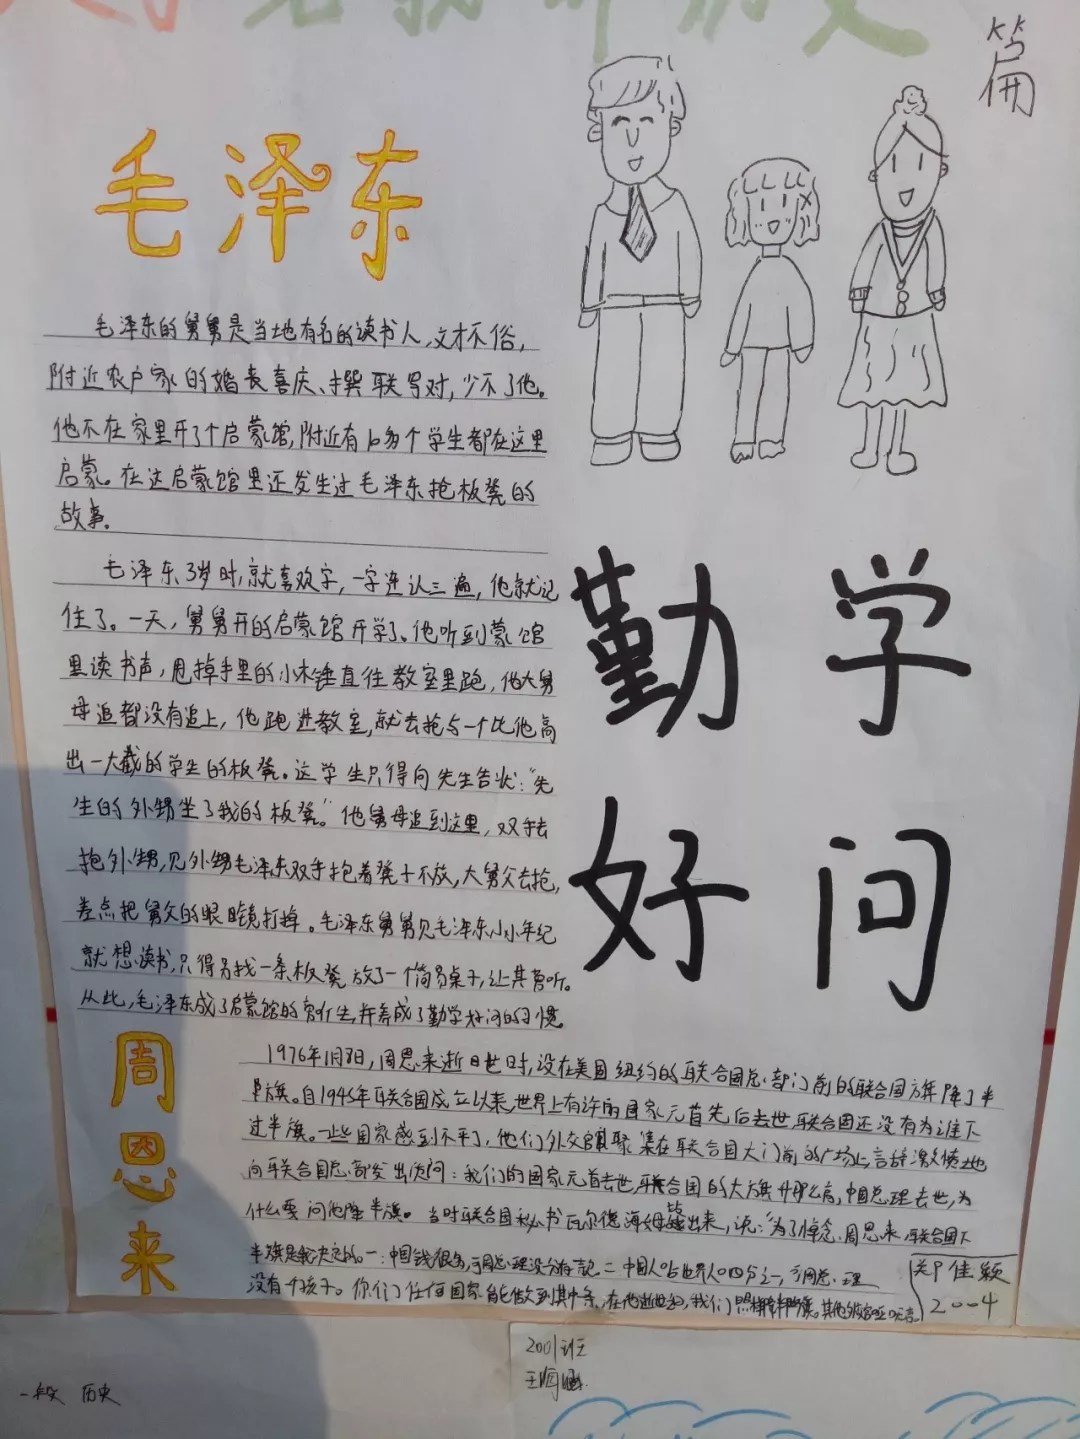 篇
毛泽东
毛泽东的舅舅是当地有名的读书人,文才不俗,
附近农户家的婚丧喜庆、撰联写对,少不了他。
他不在家里开了个启蒙馆,附近有10多个学生都在这里
启蒙。在这启蒙馆里还发生过毛泽东抢板凳的
故事。
毛泽东3岁时,就喜欢字,一字连认三遍,他就记
住了。一天,舅舅开的启蒙馆开学了。他听到蒙馆
里读书声,甩掉手里的小木锤直往教室里跑,他大舅
母追都没有追上,他跑进教室,就去抢与一个比他高
出一大截的学生的板凳。这学生只得向先生告状:“先
生的外甥坐了我的板凳。”他舅母追到这里,双手去
抱外甥,见外甥毛泽东双手抱着凳子不放,大舅父去抢,
差点把舅父的眼镜打掉。毛泽东舅舅见毛泽东小小年纪
就想读书,只得另找一条板凳放了一个简易桌子,让其旁听。
从此,毛泽东成了启蒙馆的旁听生,并养成了勤学好问的习惯。
勤学
好问
周恩来
1976年1月8日,周恩来逝世时,设在美国纽约的联合国总部门前的联合国旗降了半
旗。自1945年联合国成立以来,世界上有许多国家元首先后去世,联合国还没有为谁下
过半旗。一些国家感到不平了,他们外交官聚集在联合国大门前的广场上,言辞激愤地
向联合国总部发出质问:我们的国家元首去世,联合国的大旗升那么高,中国总理去世,为
什么要问他降半旗。当时联合国秘书瓦尔德海姆站出来,说:“为了悼念周恩来,联合国下
半旗是我决定的。一:中国钱很多,可周总理没分存款 二 中国人口占世界人口四分之一,可周总理
没有一个孩子。你们任何国家能做到其中一条,在他逝世,我们照样降半旗。
郑佳颖
2004
2001班
历史